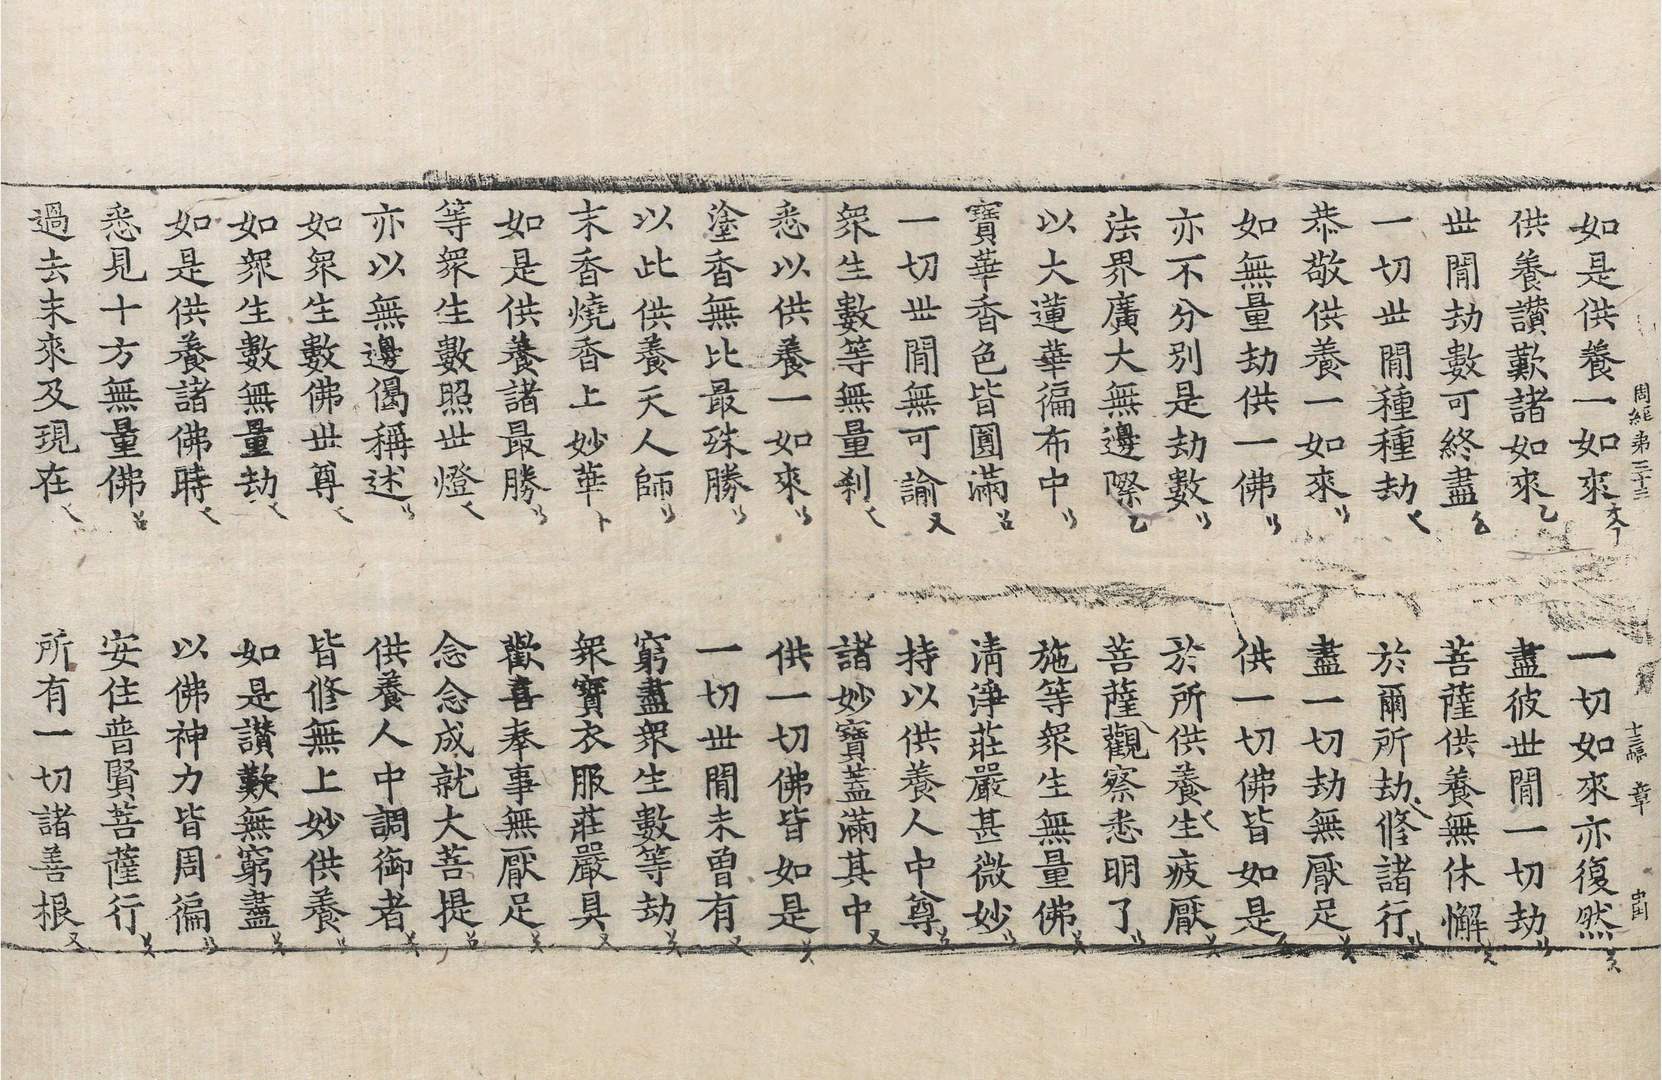 周經第二十三 十二幅 章
如是供養一如來 一切如來亦復然
供養讃歎諸如來 盡彼世閒一切劫
世閒劫數可終盡 菩薩供養無休懈
一切世閒種種劫 於爾所劫修諸行
恭敬供養一如來 盡一切劫無厭足
如無量劫供一佛 供一切佛皆如是
亦不分別是劫數 於所供養生疲厭
法界廣大無邊際 菩薩觀察悉明了
以大蓮華徧布中 施等衆生無量佛
寶華香色皆圓滿 清淨莊嚴甚微妙
一切世閒無可諭 持以供養人中尊
衆生數等無量刹 諸妙寶蓋滿其中
悉以供養一如來 供一切佛皆如是
塗香無比最殊勝 一切世閒未曾有
以此供養天人師 窮盡衆生數等劫
末香燒香上妙華 衆寶衣服莊嚴具
如是供養諸最勝 歡喜奉事無厭足
等衆生數照世燈 念念成就大菩提
亦以無邊偈稱述 供養人中調御者
如衆生數佛世尊 皆修無上妙供養
如衆生數無量劫 如是讃歎無窮盡
如是供養諸佛時 以佛神力皆周徧
悉見十方無量佛 安住普賢菩薩行
過去未來及現在 所有一切諸善根